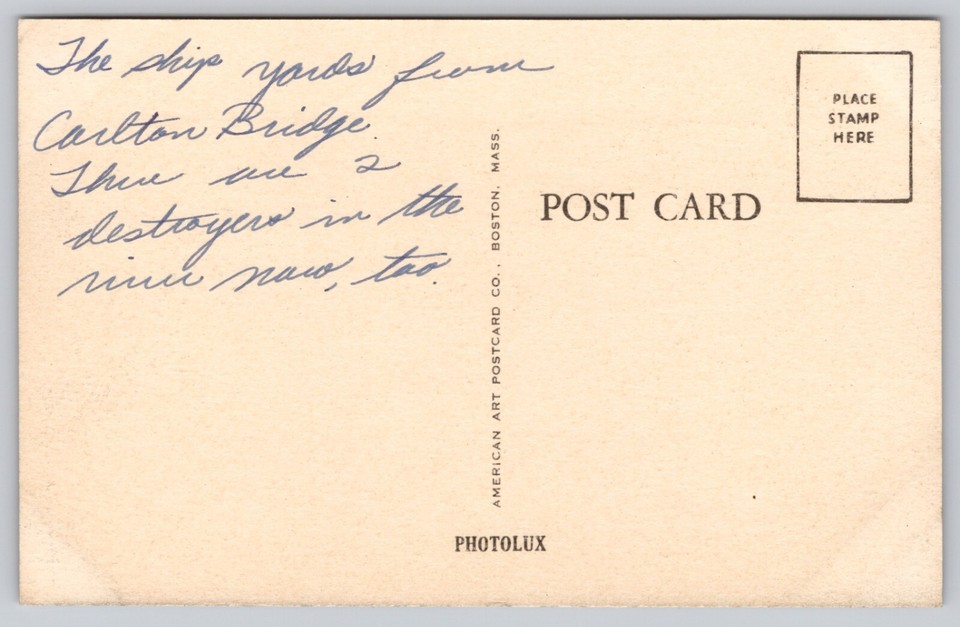 The ship yards from
Carlton Bridge.
There are 2
destroyers in the
river now, too.
AMERICAN ART POSTCARD CO., BOSTON, MASS.
POST CARD
PLACE
STAMP
HERE
PHOTOLUX